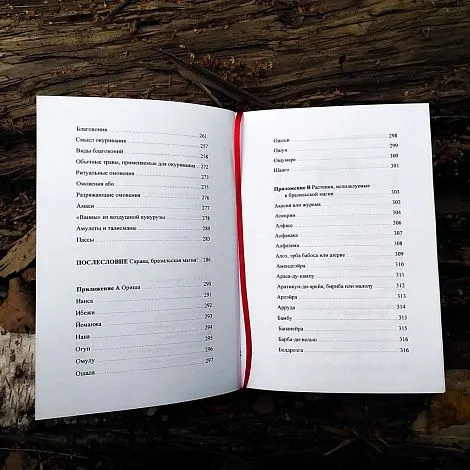 Благовония 261
Смысл окуривания 257
Виды благовоний 258
Обычные травы, применяемые для окуривания 272
Ритуальные омовения 273
Омовения або 275
Разряжающие омовения 276
Амаси 277
«Ванны» из воздушной кукурузы 278
Амулеты и талисманы 281
Пассы 283
ПОСЛЕСЛОВИЕ Сарава, бразильская магия! 286
Приложение А Ориша 290
Ианса 291
Ибежи 292
Йеманжа 293
Нана 294
Огун 295
Омулу 296
Ошала 297
Ошоси 298
Ошун 299
Ошумаре 300
Шанго 301
Приложение В Растения, используемые
в бразильской магии 303
Акасия или журема 303
Алекрин 304
Алфасе 306
Алфавака 307
Алфазема 308
Алоэ, эрба бабоса или азевре 309
Амендоэйра 310
Араса-ду-кампу 311
Аратикун-ди-арейя, бириба или малолу 312
Ароэйра 313
Арруда 314
Бамбу 315
Бананейра 315
Барба-ди-велью 316
Беладоэга 316